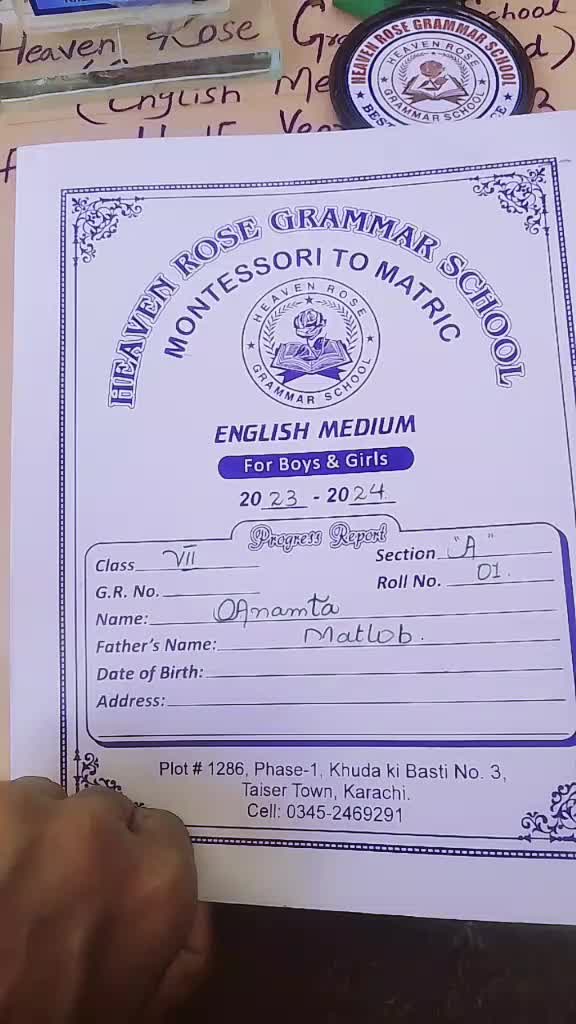 Heaven Rose School
(English
HEAVEN ROSE GRAMMAR SCHOOL
HEAVEN ROSE
GRAMMAR SCHOOL
HEAVEN ROSE GRAMMAR SCHOOL
MONTESSORI TO MATRIC
HEAVEN ROSE
GRAMMAR SCHOOL
ENGLISH MEDIUM
For Boys & Girls
2023 - 2024
Progress Report
Class VII Section "A"
G.R. No. Roll No. 01.
Name: Anamta
Father's Name: Matlob.
Date of Birth:
Address:
Plot # 1286, Phase-1, Khuda ki Basti No. 3,
Taiser Town, Karachi.
Cell: 0345-2469291